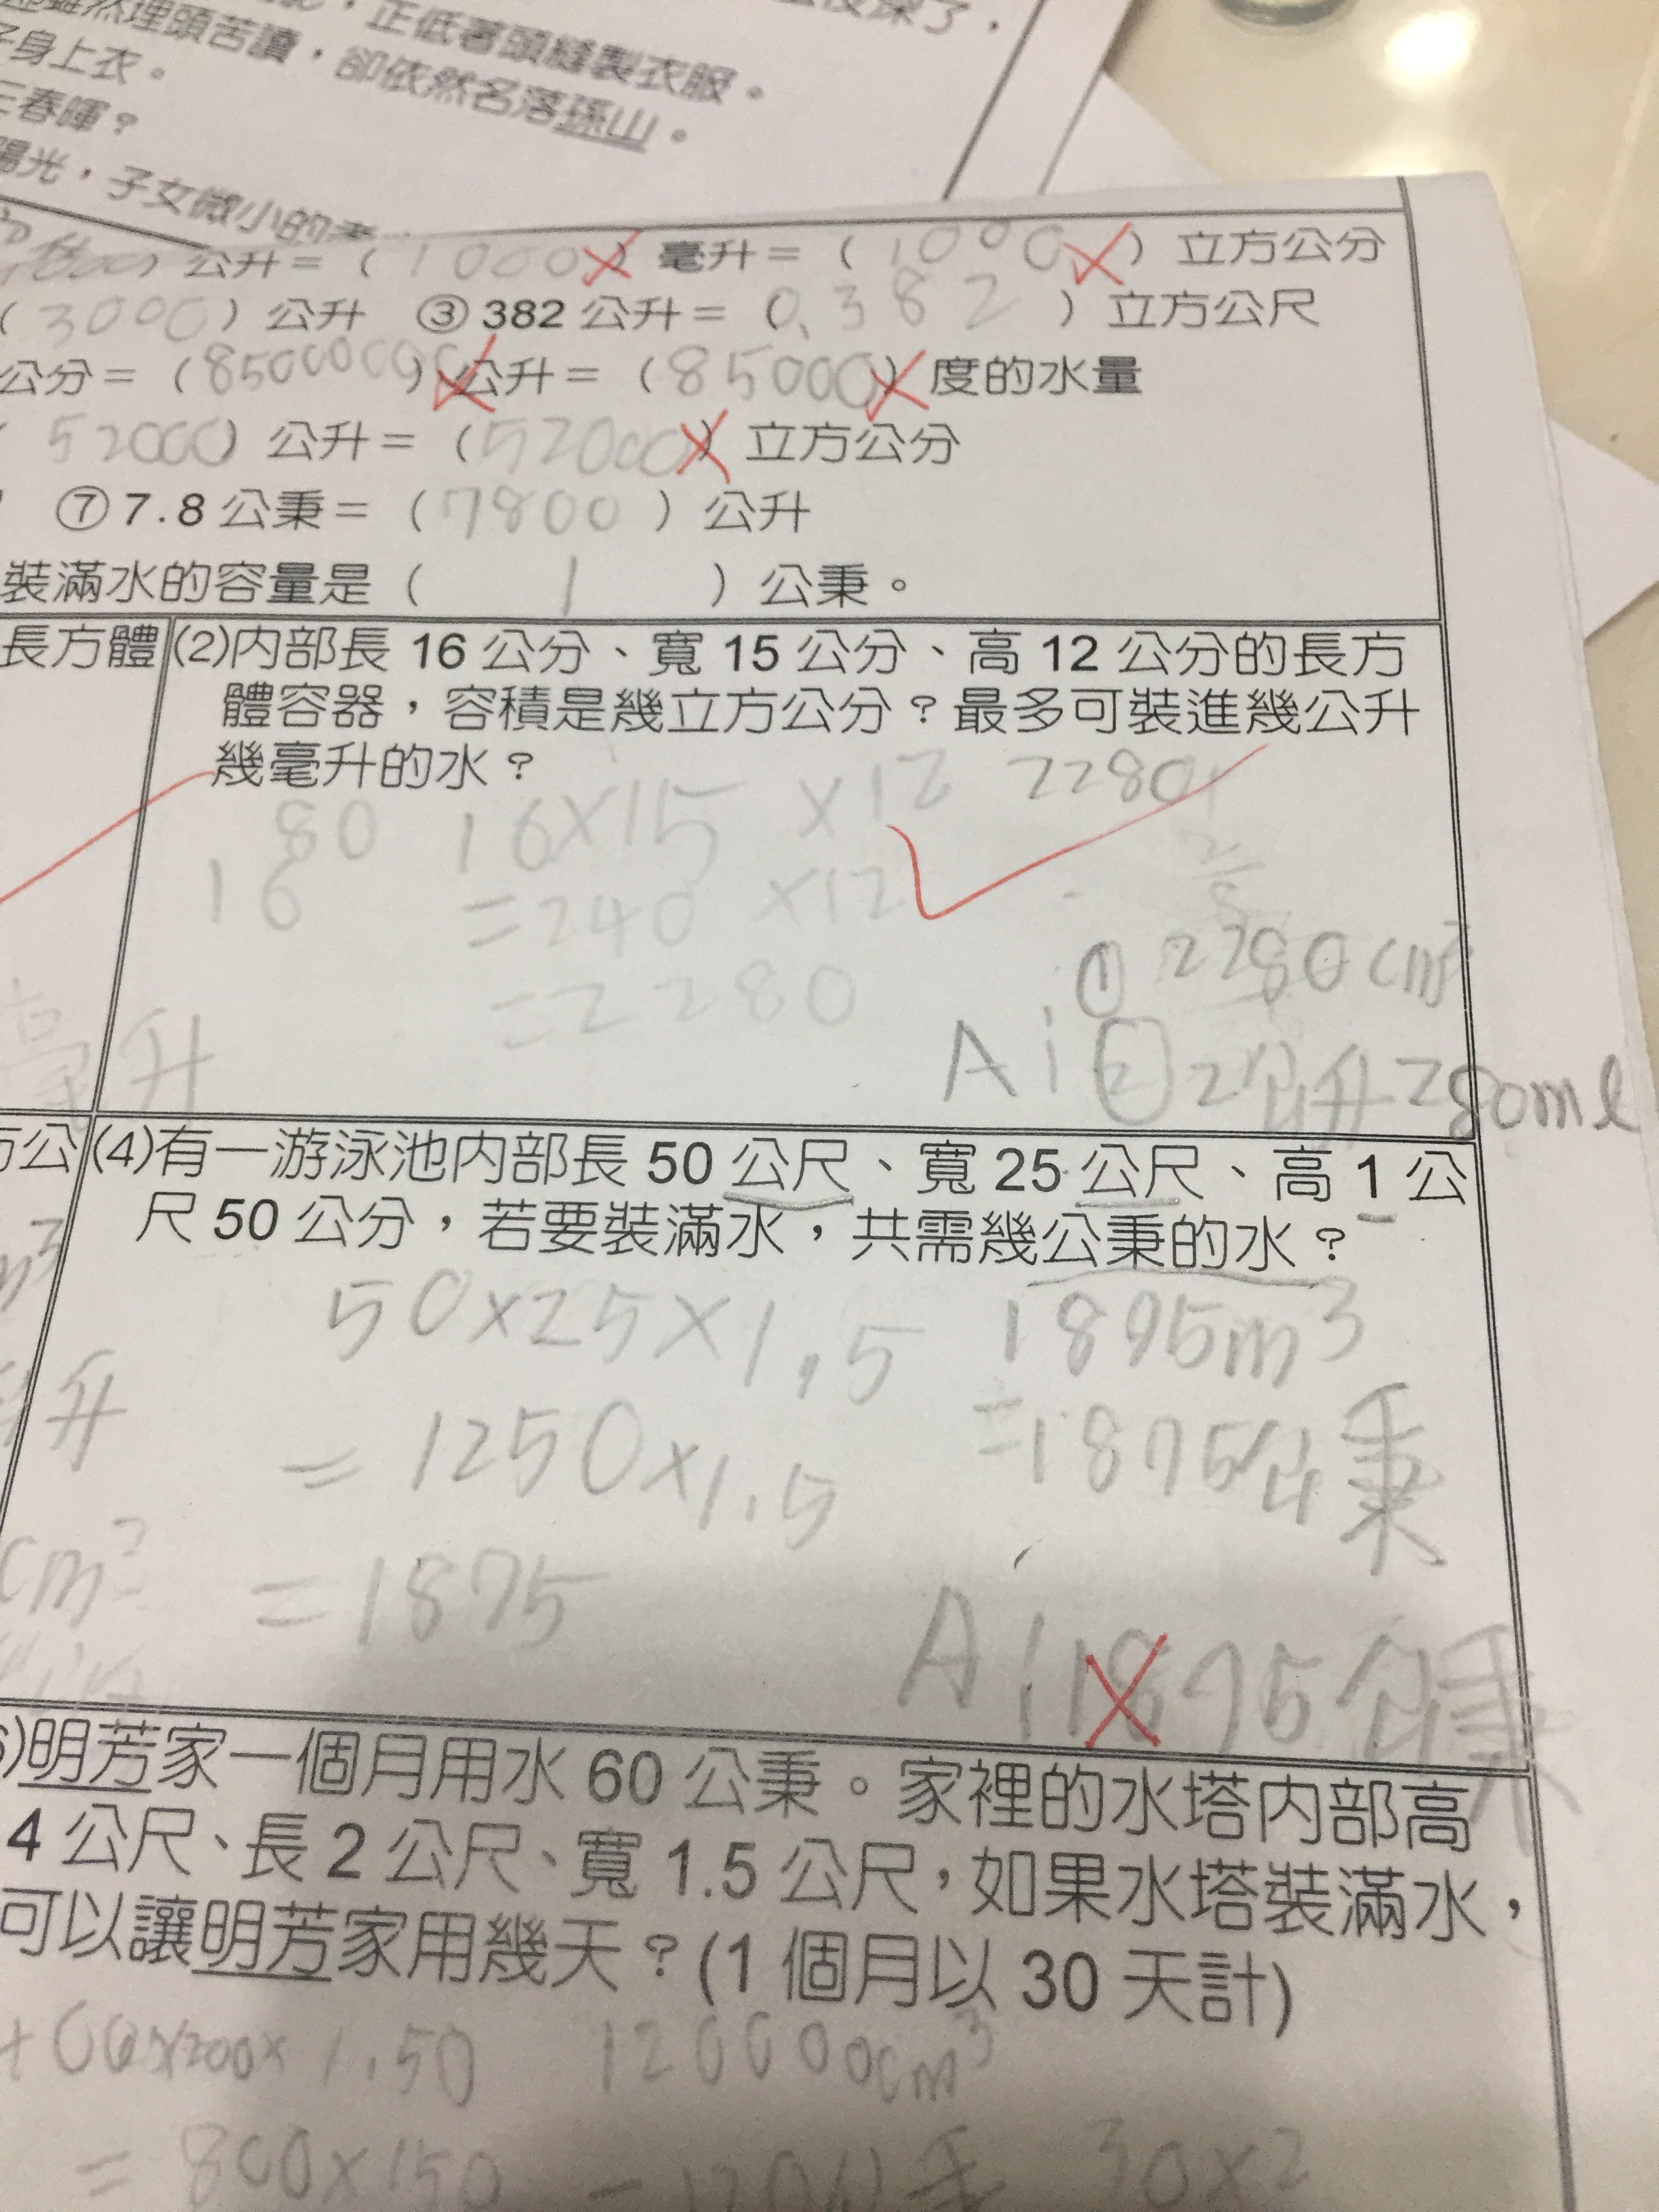 正低著頭縫製衣服。
雖然埋頭苦讀，卻依然名落孫山。
子身上衣。
三春暉？
陽光，子女微小的孝
公升＝（1000）毫升＝（1000）立方公分
（3000）公升 ③382公升＝（0.382）立方公尺
公分＝（）公升＝（85000）度的水量
52000）公升＝（52000）立方公分
⑦7.8公秉＝（7800）公升
裝滿水的容量是（1）公秉。
長方體
(2)內部長16公分、寬15公分、高12公分的長方
體容器，容積是幾立方公分？最多可裝進幾公升
幾毫升的水？
80 16×15×12 2280
16 =240×12
=2280
① 2280cm³
A: ② 2公升280ml
毫升
方公
(4)有一游泳池內部長50公尺、寬25公尺、高1公
尺50公分，若要裝滿水，共需幾公秉的水？
50×25×1.5 1895m³
=1250×1.5 =1875公秉
=1875
A:1875公秉
m³
升
cm³
6)明芳家一個月用水60公秉。家裡的水塔內部高
4公尺、長2公尺、寬1.5公尺，如果水塔裝滿水，
可以讓明芳家用幾天？(1個月以30天計)
×200×1.50 120000cm³
=800×150 30×2